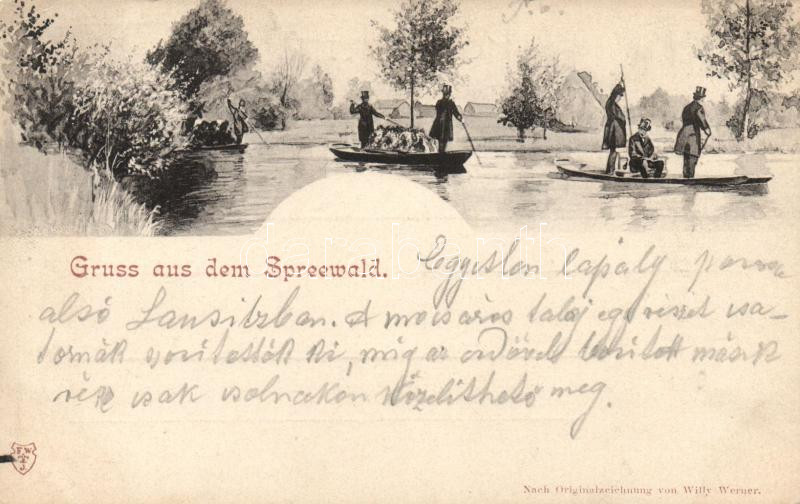 Gruss aus dem Spreewald.
Egyetlen lapály
alsó Lausitzban. A mocsáros talaj egy részét csa-
tornák szorították ki, míg az erdővel borított másik
rész csak csolnakon közelíthető meg.
F W
J
Nach Originalzeichnung von Willy Werner.
darabanth